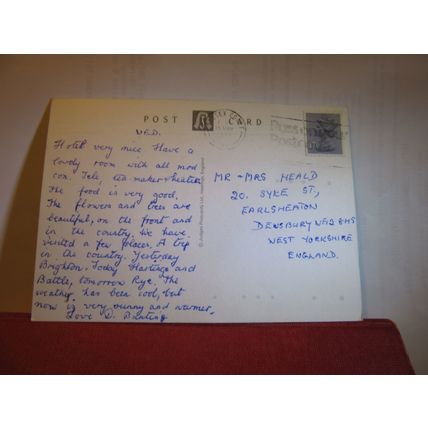 POST CARD
WED.
Hotel very nice Have a
lovely room with all mod
con, Tele, tea-maker & heater
The food is very good,
The flowers and trees are
beautiful, on the front and
in the country. We have
visited a few places. A trip
in the country, Yesterday
Brighton, Today Hastings and
Battle, tomorrow Rye. The
weather has been cool, but
now is very sunny and warmer.
Love D.
MR & MRS HEALD
20. SYKE ST,
EARLSHEATON
DEWSBURY
WEST YORKSHIRE
ENGLAND.
© Judges Postcards Ltd., Hastings, England